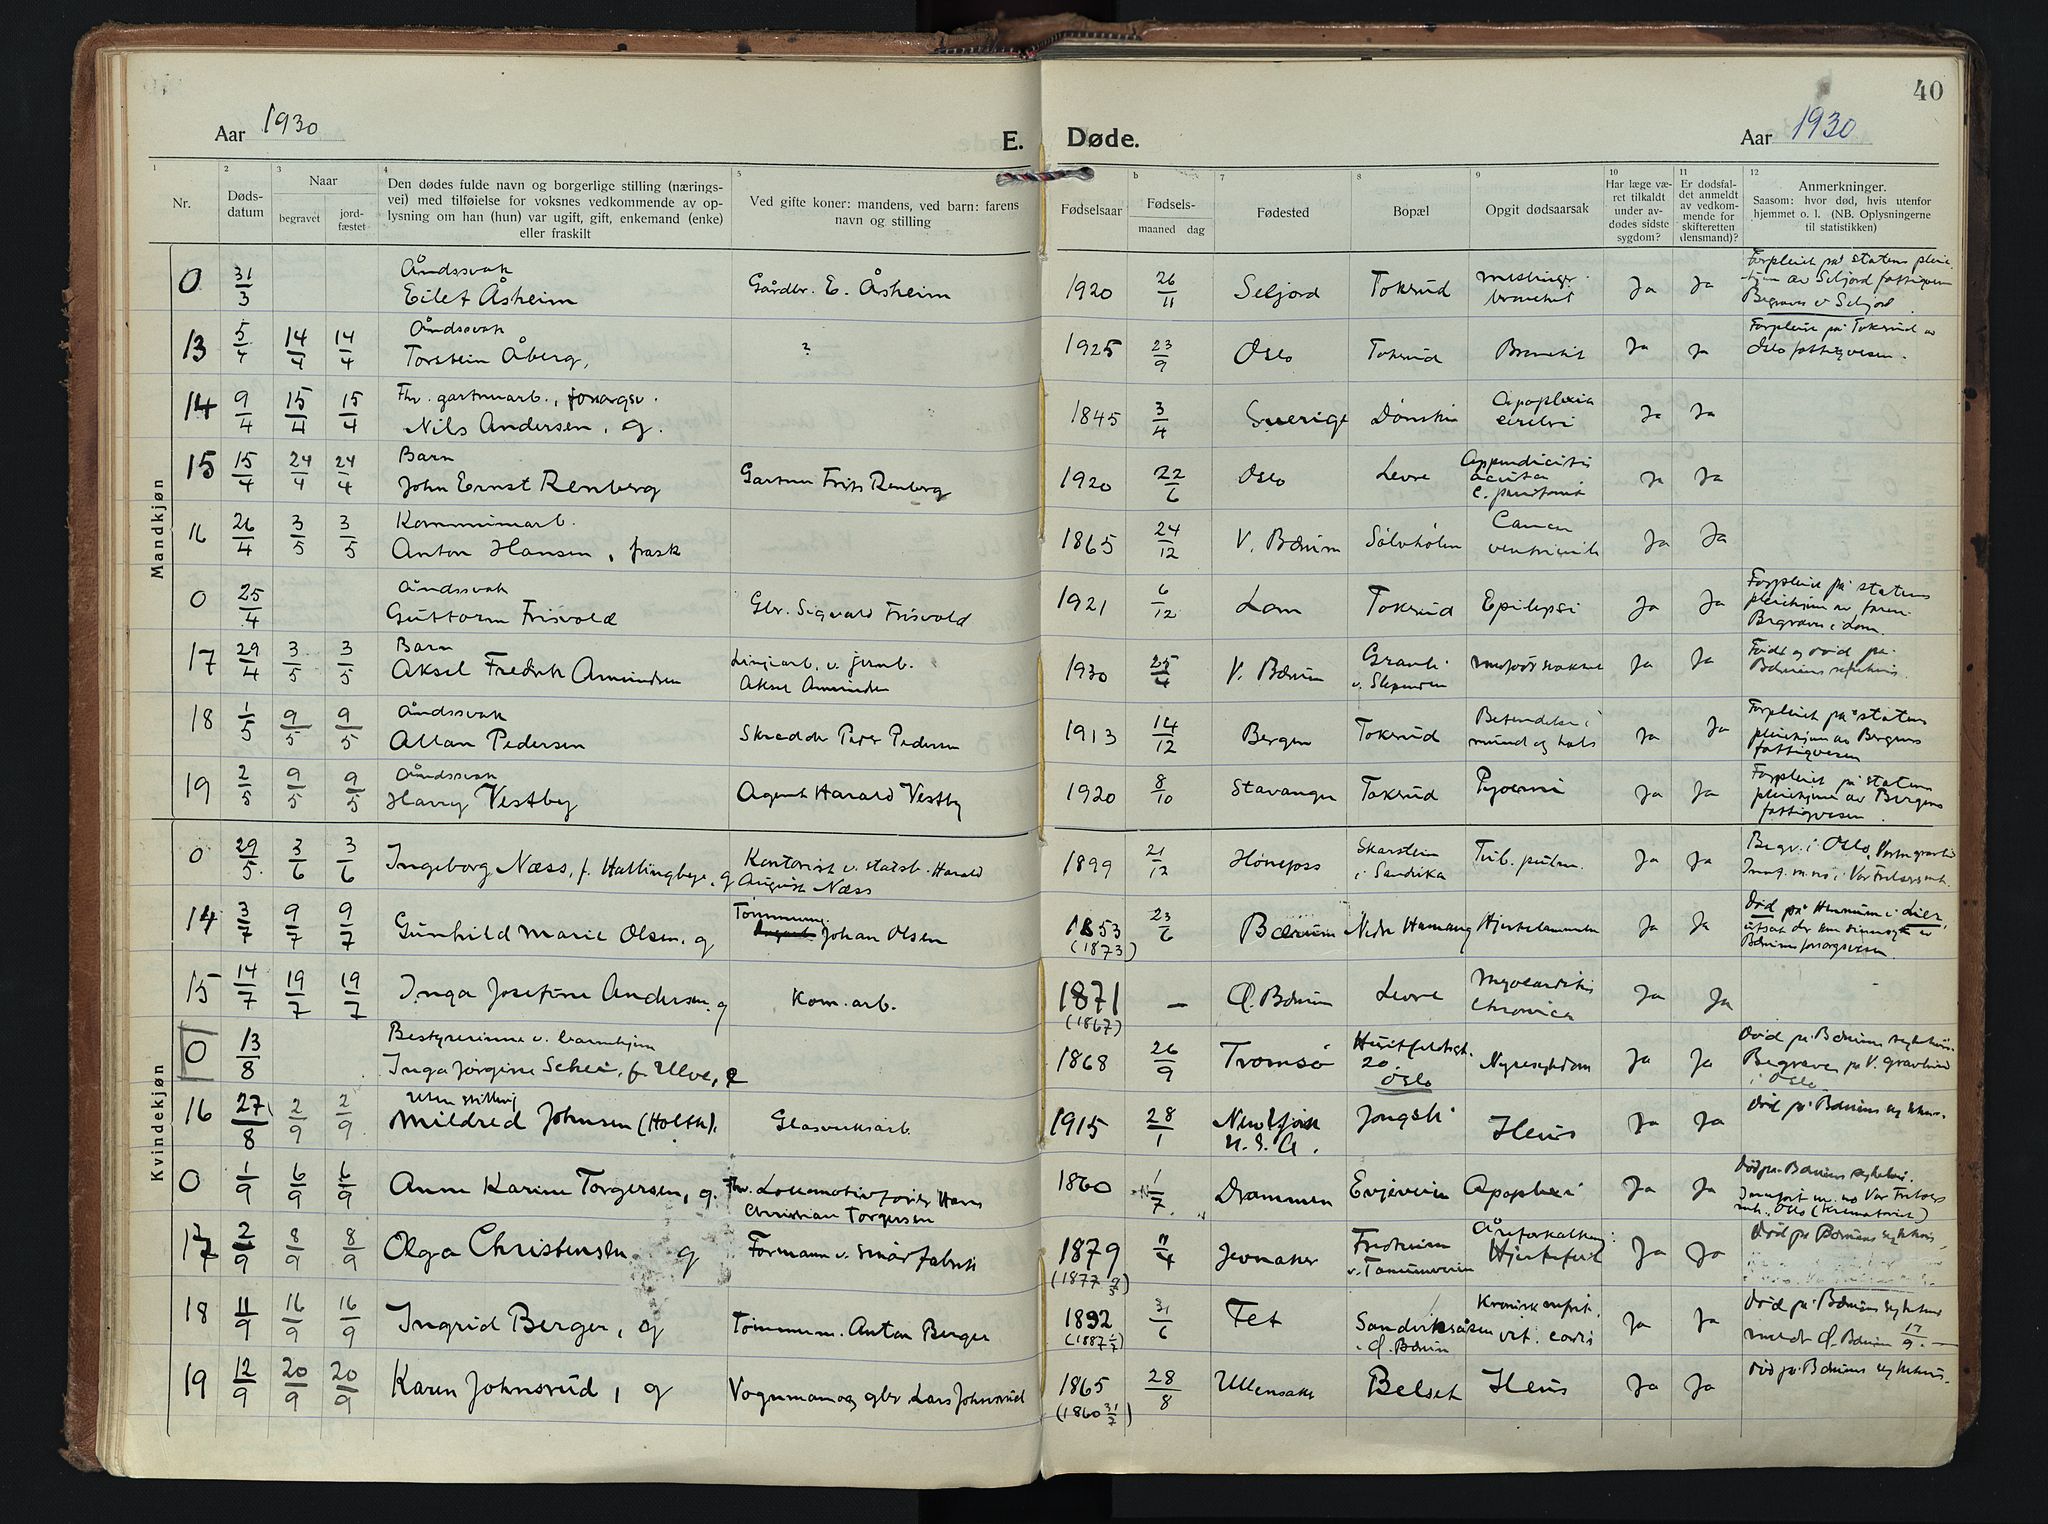 Aar 1930
E.
Døde.
Aar 1930
40
1 2 3 4 5 b 7 8 9 10 11 12
Nr.
Døds-
datum
Naar
begravet
jord-
fæstet
Den dødes fulde navn og borgerlige stilling (nærings-
vei) med tilføielse for voksnes vedkommende av op-
lysning om han (hun) var ugift, gift, enkemand (enke)
eller fraskilt
Ved gifte koner: mandens, ved barn: farens
navn og stilling
Fødselsaar
Fødsels-
maaned dag
Fødested
Bopæl
Opgit dødsaarsak
Har læge væ-
ret tilkaldt
under av-
dødes sidste
sygdom?
Er dødsfal-
det anmeldt
av vedkom-
mende for
skifteretten
(lensmand)?
Anmerkninger.
Saasom: hvor død, hvis utenfor
hjemmet o. l. (NB. Oplysningerne
til statistikken)
Mandkjøn
0 31/3 Åndssvak
Eilef Åsheim Gårdbr. E. Åsheim 1920 26/11 Seljord Tokerud Ja Ja Forpleiet på statens
av Seljord fattigvesen
Begraves i Seljord.
13 5/4 14/4 14/4 Åndssvak
Torstein Åberg, ? 1925 23/9 Oslo Tokerud Bronkit Ja Ja Forpleiet på Tokerud av
Oslo fattigvesen.
14 9/4 15/4 15/4 Fhv. gartnerarb., forsorgsv.
Nils Andersen, g. 1845 3/4 Sverige Dønski Apoplexia
cerebri Ja Ja
15 15/4 24/4 24/4 Barn
John Ernst Renberg Gartner Frits Renberg 1920 22/6 Oslo Levre Appendicitis
acuta
c. peritonit Ja Ja
16 26/4 3/5 3/5 Kommunearb.
Anton Hansen, frask 1865 24/12 V. Bærum Sølvhølen Cancer
ventriculi Ja Ja
0 25/4 Åndssvak
Guttorm Frisvold Gbr. Sigvald Frisvold 1921 6/12 Lom Tokerud Epilepsi Ja Ja Forpleiet på statens
pleiehjem av faren.
Begraves i Lom.
17 29/4 3/5 3/5 Barn
Aksel Fredrik Amundsen Linjearb. v. jernb.
Aksel Amundsen 1930 25/4 V. Bærum
v. Slependen Ja Ja Født og død på
Bærums sykehus.
18 1/5 9/5 9/5 Åndssvak
Allan Pedersen Skredder Peter Pedersen 1913 14/12 Bergen Tokerud Betendelse i
mund og hals Ja Ja Forpleiet på statens
pleiehjem av Bergens
fattigvesen
19 2/5 9/5 9/5 Åndssvak
Harry Vestby Agent Harald Vestby 1920 8/10 Stavanger Tokerud Pyoemi Ja Ja Forpleiet på statens
pleiehjem av Bergens
fattigvesen.
Kvindekjøn
0 29/5 3/6 3/6 Ingeborg Næss, f. Hallingbye, g Kontorist v. statsb. Harald
August Næss 1899 21/12 Hønefoss Skarstein
i Sandvika Tub. pulm. Ja Ja Begr. i Oslo, Vestre gravlund
i Vår Frelsers mh.
14 3/7 9/7 9/7 Gunhild Marie Olsen, g Tømmerm.
Johan Olsen 1853
(1873) 23/6 Bærum Nedre Hamang Hjertelammelse Ja Ja Død på Hennum i Lier,
utsat der kun av
Bærums forsorgsvesen.
15 14/7 19/7 19/7 Inga Josefine Andersen, g Kom. arb. 1871
(1867) — Ø. Bærum Levre Myocarditis
chronica Ja Ja
0 13/8 Bestyrerinne v. barnehjem
Inga Jørgine Schei, f. Ulve, e 1868 26/9 Tromsø Huitfeldtsgt.
20
Oslo Nyresykdom Ja Ja Død på Bærums sykehus.
Begraves på V. gravlund
i Oslo
16 27/8 2/9 2/9 Uten stilling
Mildred Johnsen (Holth), Glasverksarb. 1915 28/1
U.S.A. Jongsk. Ileus Ja Ja Død på Bærums sykehus.
0 1/9 6/9 6/9 Anne Karine Torgersen, g. Fhv. Lokomotivfører Hans
Christian Torgersen 1860 1/7 Drammen Evjeveien Apoplexi Ja Ja Død på Bærums sykehus.
Vår Frelsers
mh. Oslo (Krematoriet)
17 2/9 8/9 8/9 Olga Christensen g Formann v. smørfabrik 1879
(1877 9/3) 11/4 Jevnaker Fredheim
v. Tanumveien Åreforkalkning:
Hjertefeil Ja Ja Død på Bærums sykehus.
18 11/9 16/9 16/9 Ingrid Berger, g Tømmerm. Anton Berger 1892
(1887 1/7) 31/6 Fet Sandviksåsen
i Ø. Bærum Kronisk nefrit.
vit. cordis Ja Ja Død på Bærums sykehus
meldt Ø. Bærum 17/9. —
19 12/9 20/9 20/9 Karen Johnsrud, g Vognmann og gbr Lars Johnsrud 1865
(1860 31/7) 28/8 Ullensaker Belset Ileus Ja Ja Død på Bærums sykehus.